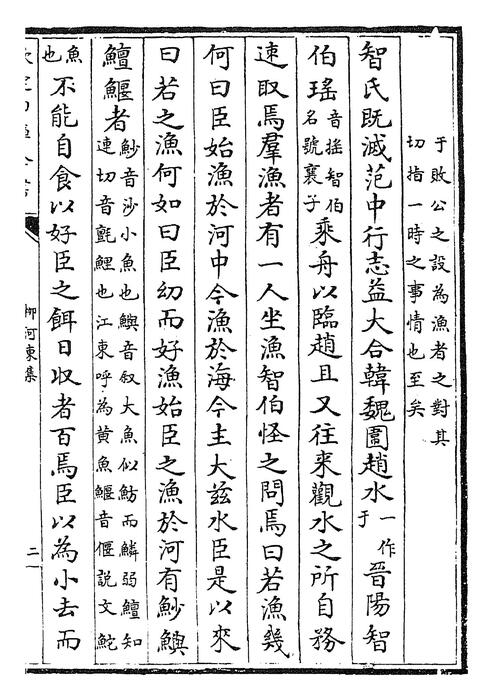 于敗公之設為漁者之對其
切指一時之事情也至矣
智氏既滅范中行志益大合韓魏圍趙水一作于晉陽智
伯瑤音揺智伯名號襄子乗舟以臨趙且又往来觀水之所自務
速取焉羣漁者有一人坐漁智伯怪之問焉曰若漁幾
何曰臣始漁於河中今漁於海今主大兹水臣是以來
曰若之漁何如曰臣幼而好漁始臣之漁於河有魦鱮
鱣鰋者魦音沙小魚也鱮音叙大魚似魴而鱗弱鱣知連切音氈鯉也江東呼為黄魚鰋音偃説文鮀
魚也不能自食以好臣之餌日收者百焉臣以為小去而
柳河東集
二